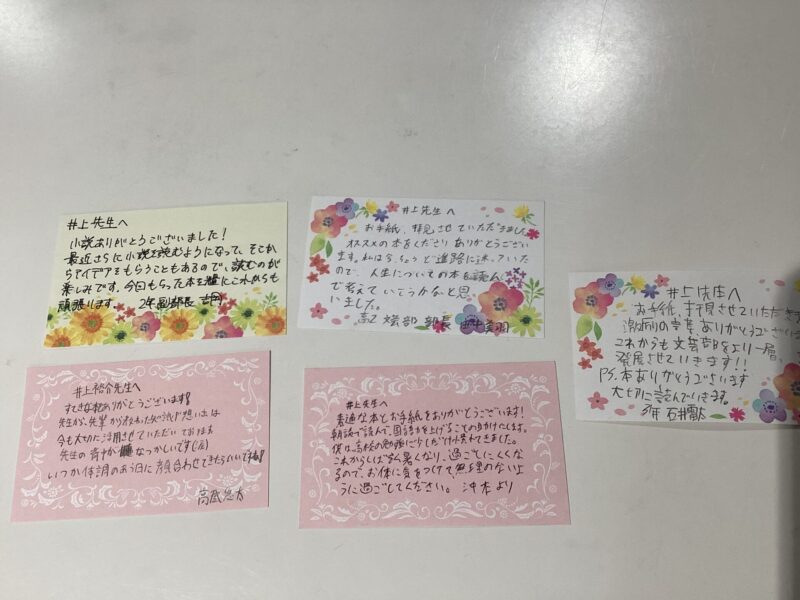 井上先生へ
小説ありがとうございました!
最近さらに小説を読むようになって、そこか
らアイデアをもらうこともあるので、読むのが
楽しみです。今回もらった本を糧にこれからも
頑張ります 2年副部長
井上先生へ
お手紙、拝見させていただきました。
オススメの本をくださりありがとうござい
ます。私は今、ちょうど進路に迷っていた
ので、人生についての本を読ん
で考えていこうかなと思
いました。
文芸部 部長
井上先生へ
お手紙、拝見させていただきま
激励の言葉、ありがとうございま
これからも文芸部をより一層、
発展させていきます!!
P.S. 本ありがとうございます
大切に読んでいきます。
井上裕介先生へ
すてきな ありがとうございます
先生から、先輩から
今も大切に活用させていただいております
先生の なつかしいです
いつか体調のあう日に顔合わせできたらいいですね
井上先生へ
素適な本とお手紙をありがとうございます!
朝読で読んで、国語力を上げることの助けにします。
僕は高校の勉強に少しだけ慣れてきました。
これからしばらく暑くなり、過ごしにくくな
るので、お体に気をつけて無理のないよ
うに過ごしてください。 沖本より